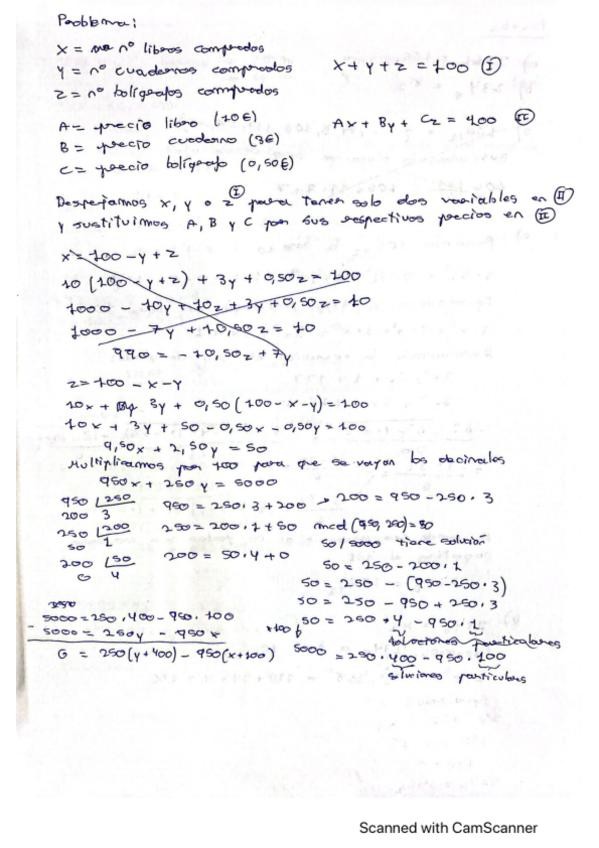 Problema:
X = nº libros comprados
Y = nº cuadernos comprados
Z = nº bolígrafos comprados
X + Y + Z = 100 (I)
A = precio libro (10€)
B = precio cuaderno (3€)
C = precio bolígrafo (0,50€)
Ax + By + Cz = 100 (II)
Despejamos x, y o z (I) para tener solo dos variables en (II)
y sustituimos A, B y C por sus respectivos precios en (II)
x = 100 - y + z
10 (100 - y + z) + 3y + 0,50z = 100
1000 - 10y + 10z + 3y + 0,50z = 10
1000 - 7y + 10,50z = 10
990 = -10,50z + 7y
z = 100 - x - y
10x + 3y + 0,50 (100 - x - y) = 100
10x + 3y + 50 - 0,50x - 0,50y = 100
9,50x + 2,50y = 50
Multiplicamos por 100 para que se vayan los decimales
950x + 250y = 5000
950 | 250
200 3
950 = 250 · 3 + 200 → 200 = 950 - 250 · 3
250 | 200
50 1
250 = 200 · 1 + 50
mcd (950, 250) = 50
200 | 50
0 4
200 = 50 · 4 + 0
50 / 5000 tiene solución
50 = 250 - 200 · 1
50 = 250 - (950 - 250 · 3)
50 = 250 - 950 + 250 · 3
50 = 250 · 4 - 950 · 1
soluciones particulares
x100
5000 = 250 · 400 - 950 · 100
soluciones particulares
5000 = 250 · 400 - 950 · 100
- 5000 = 250y - 950x
0 = 250 (y + 400) - 950 (x + 100)
Scanned with CamScanner